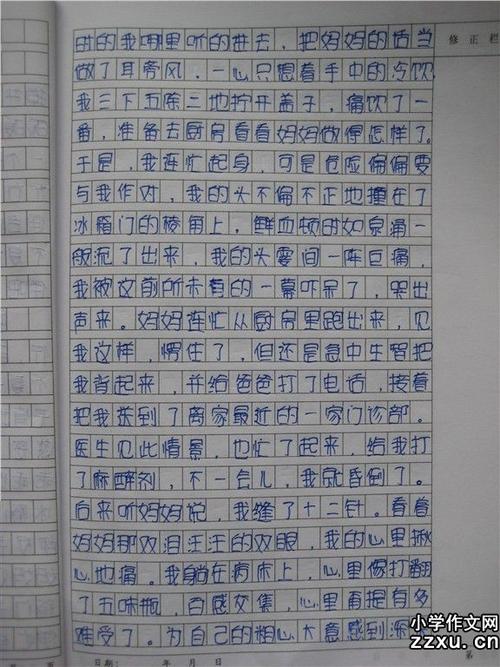 时的我哪里听的进去，把妈妈的话当
修正栏
做了耳旁风。一心只想着手中的冷饮，
我三下五除二地拧开盖子，痛饮了一
番，准备去厨房看看妈妈做得怎样了。
于是，我连忙起身，可是危险偏偏要
与我作对，我的头不偏不正地撞在了
冰箱门的棱角上，鲜血顿时如泉涌一
般流了出来，我的头霎间一阵巨痛，
我被这前所未有的一幕吓呆了，哭出
声来。妈妈连忙从厨房里跑出来，见
我这样，愣住了，但还是急中生智把
我背起来，并给爸爸打了电话，接着
把我送到了离家最近的一家门诊部。
医生见此情景，也忙了起来，给我打
了麻醉剂，不一会儿，我就昏倒了。
后来听妈妈说，我缝了十二针。看着
妈妈那双泪汪汪的双眼，我的心里揪
心地痛。我躺在病床上，心里像打翻
了五味瓶，百感交集，心里再提有多
难受了。为自己的粗心大意感到深
小学作文网
zzxu.cn
共 页
日期： 年 月 日
第